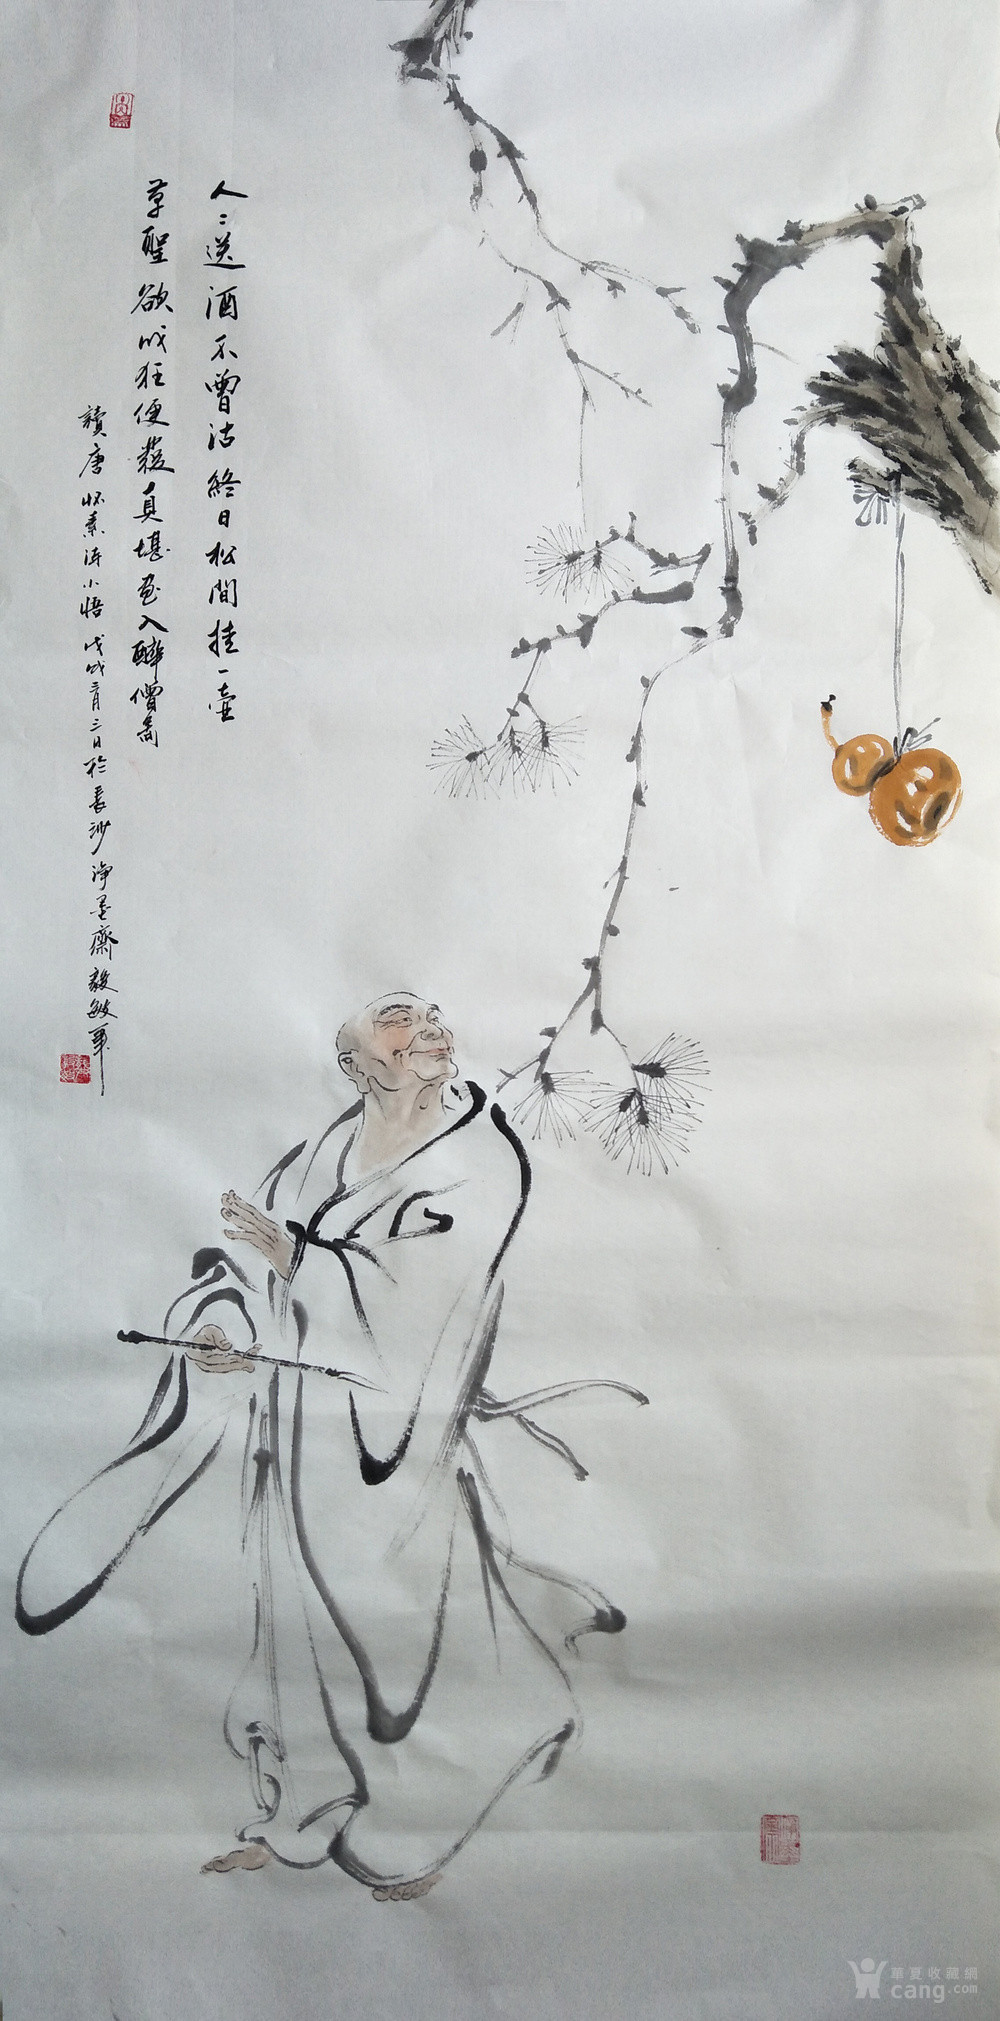 人〻送酒不曽沽終日松間挂一壷
草聖欲成狂便發真堪畫入醉僧圖
讀唐怀素诗小悟戊戌二月三日於長沙淨墨齋毅敏軍
華夏收藏網
cang.com